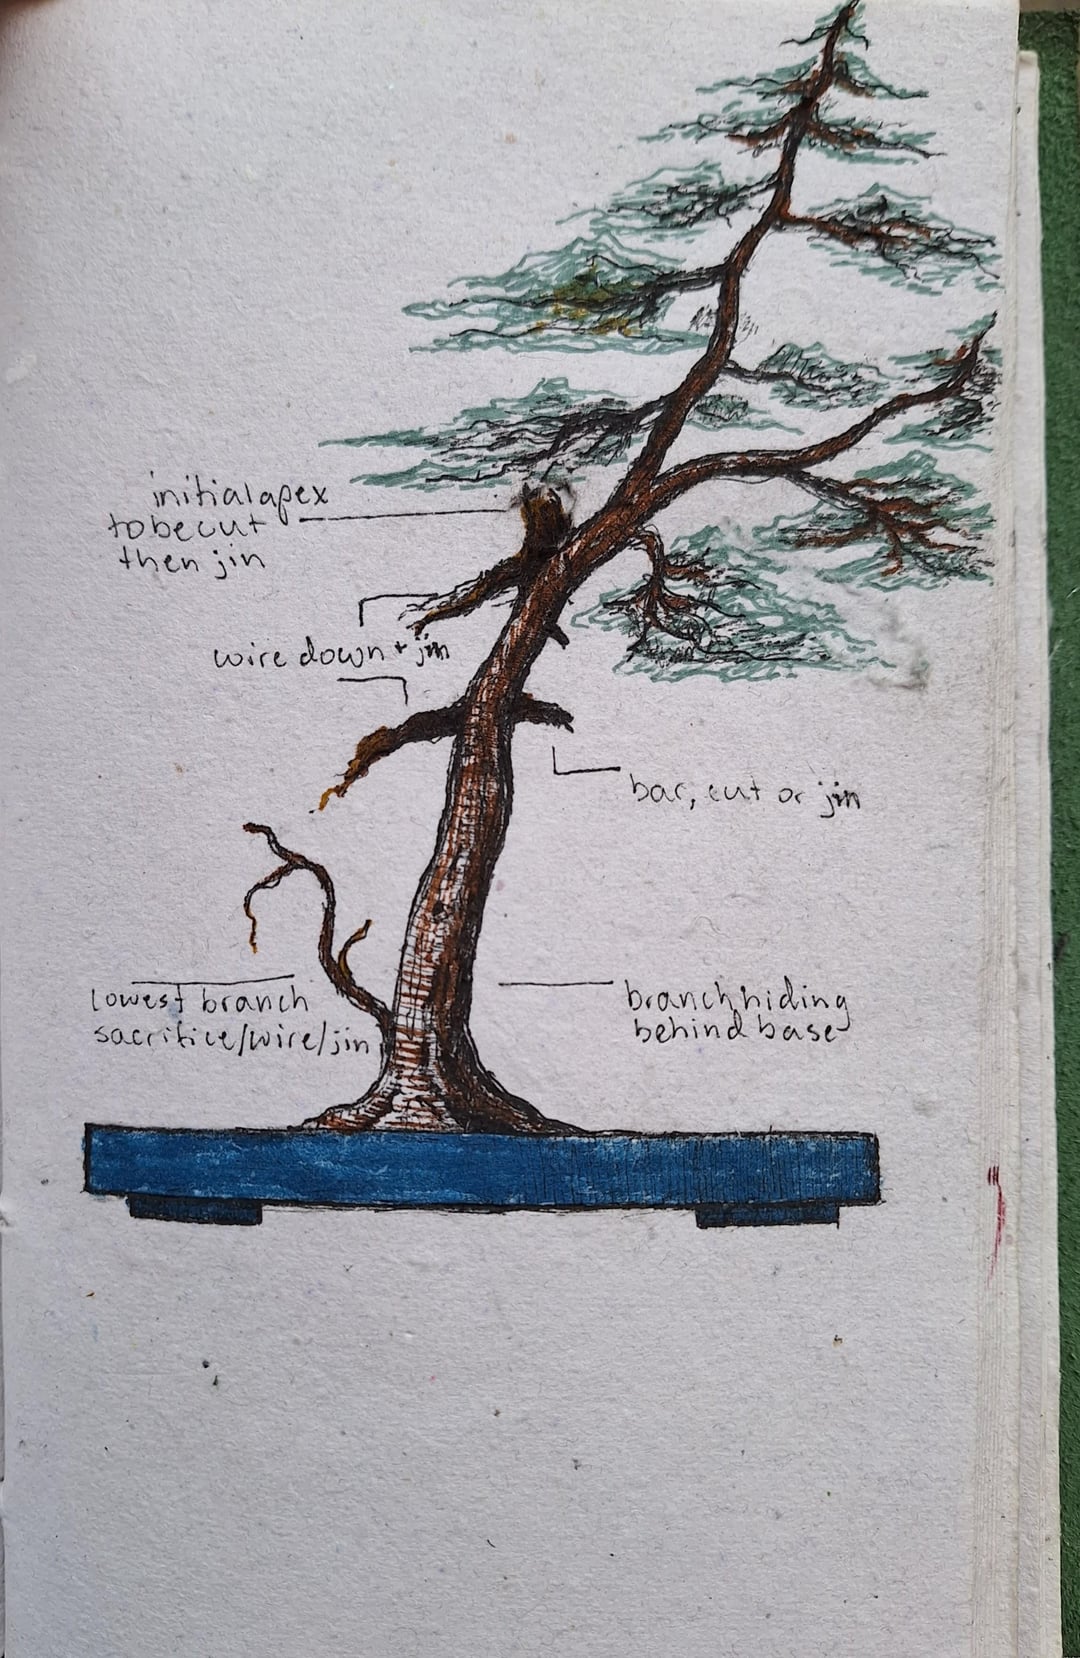 initial apex
to be cut
then jin
wire down + jin
bar, cut or jin
lowest branch
sacrifice/wire/jin
branch hiding
behind base